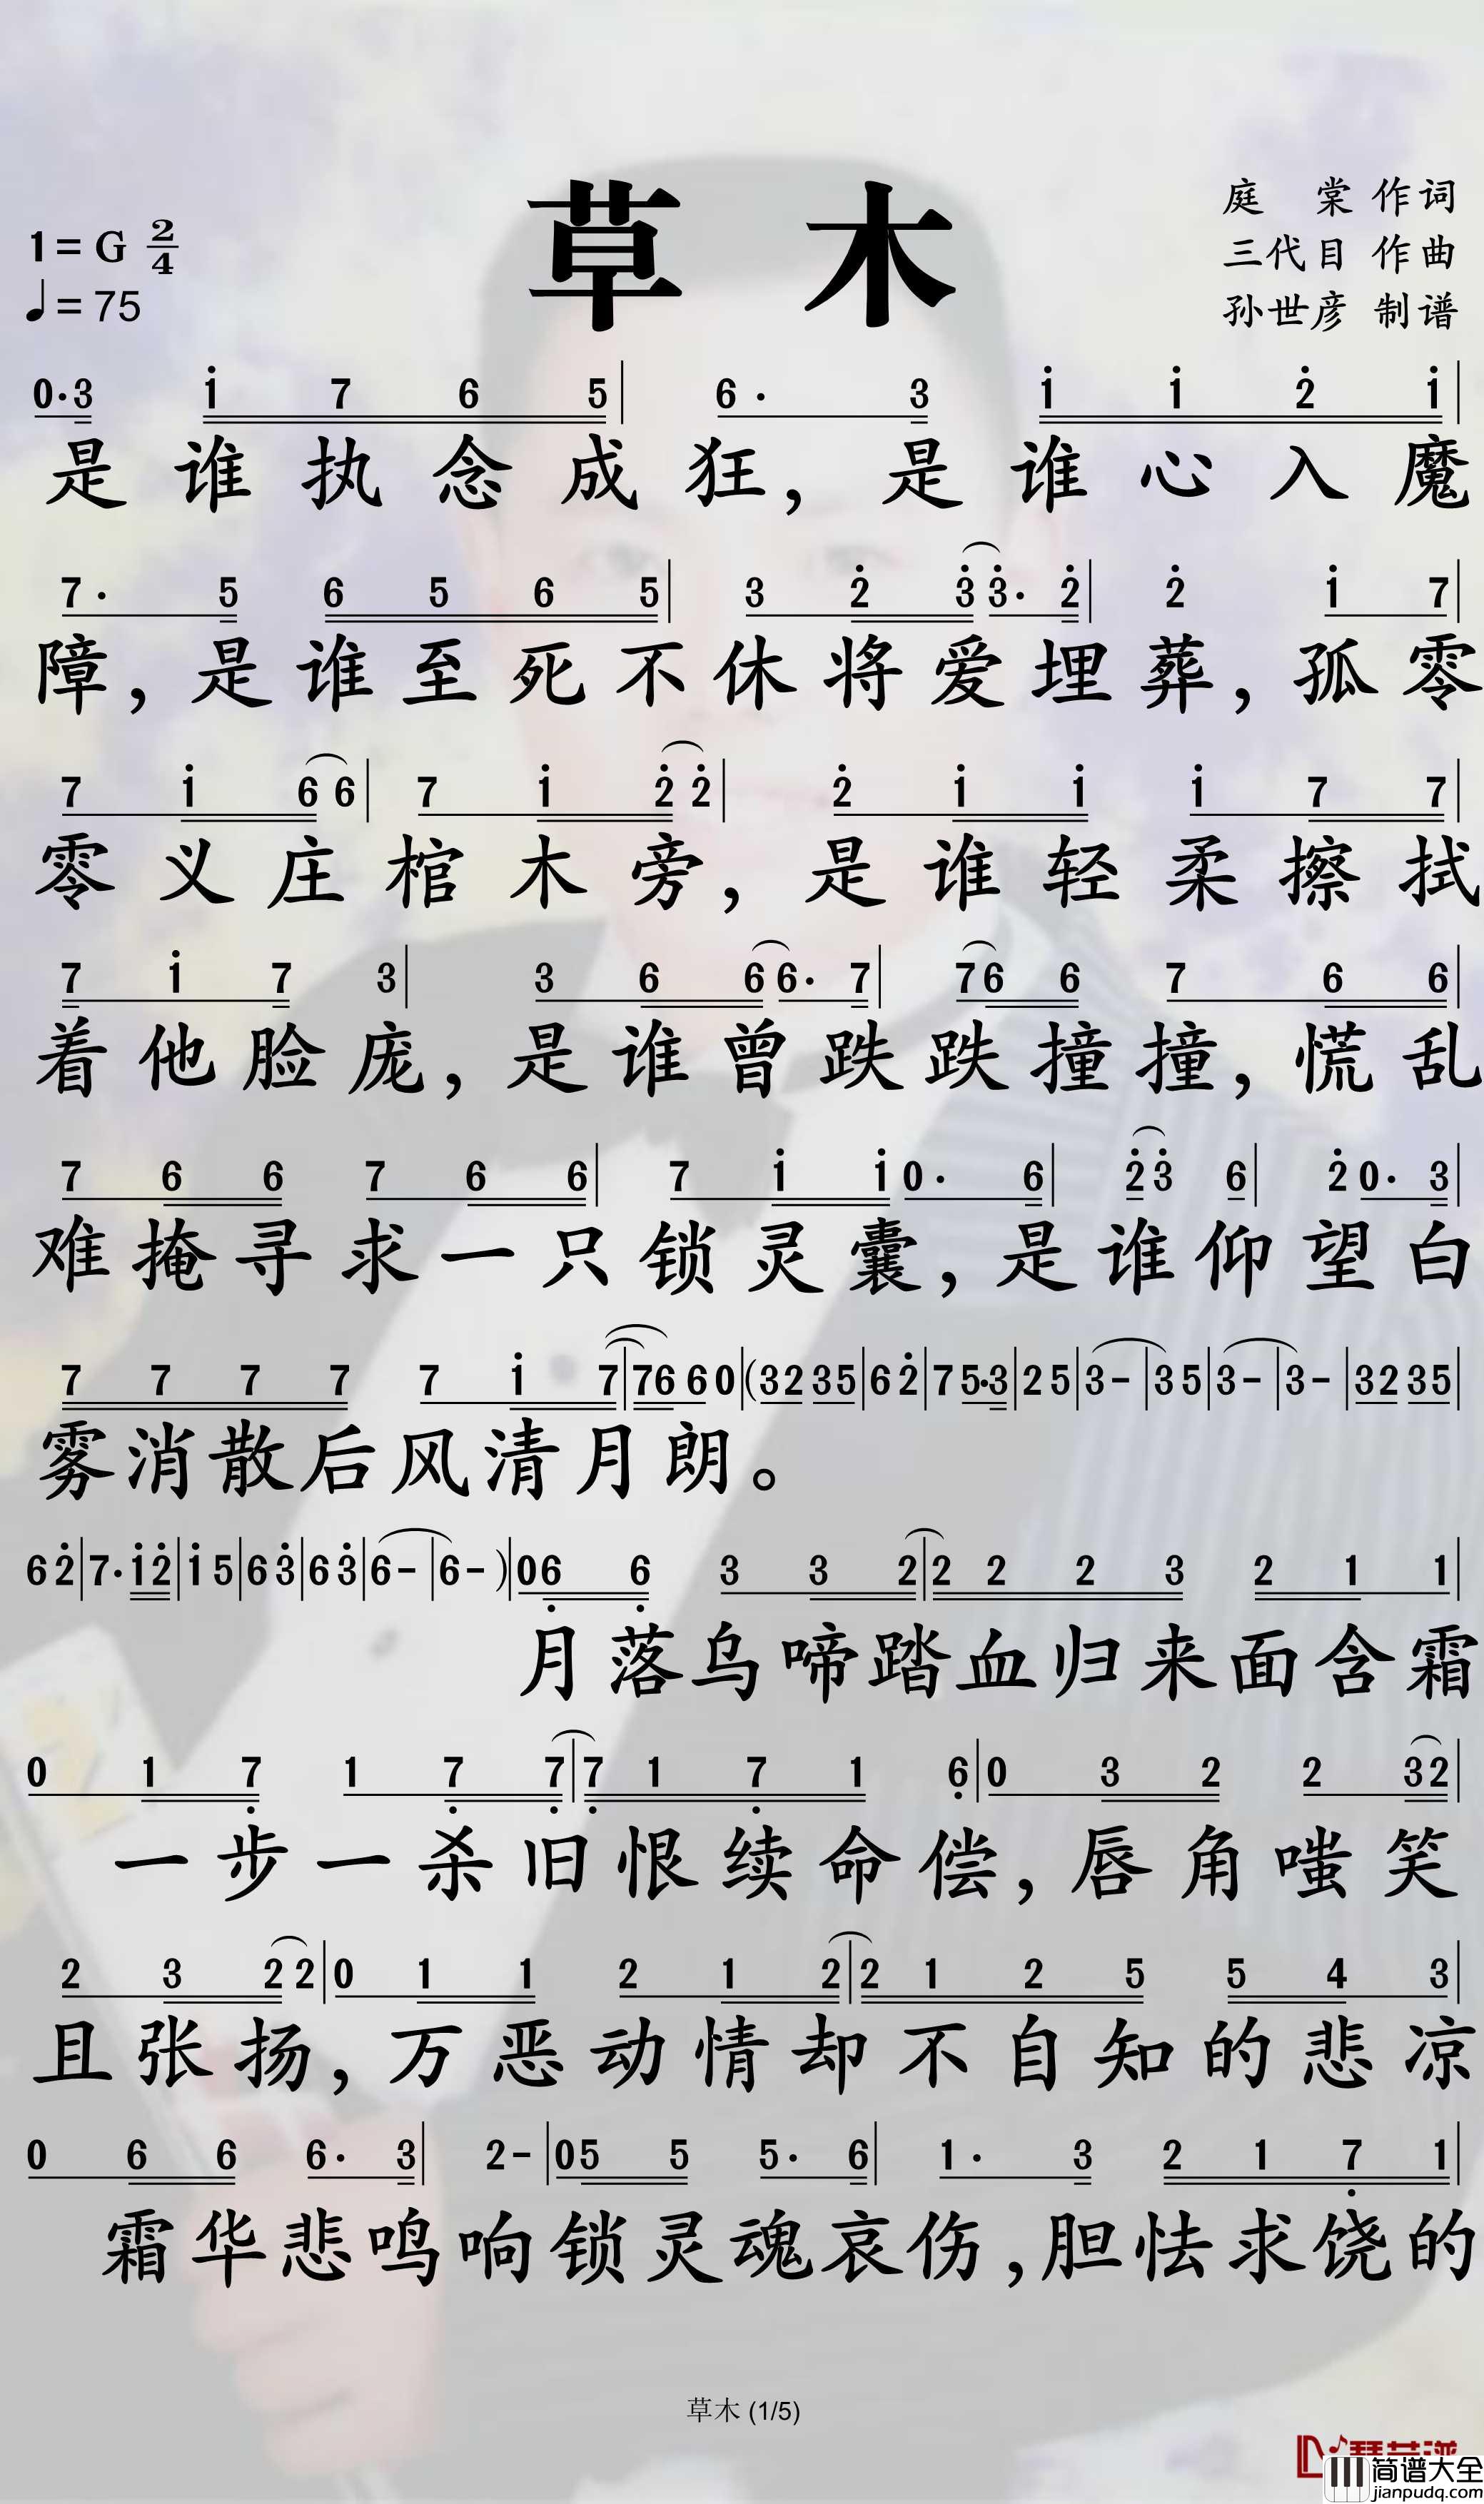 草 木
1=G 2/4
♩=75
庭 棠 作词
三代目 作曲
孙世彦 制谱
0·3 i 7 6 5| 6· 3 i i 2̇ i|
是谁执念成狂，是谁心入魔
7· 5 6 5 6 5| 3 2̇ 3̇ 3̇· 2̇| 2̇ i 7|
障，是谁至死不休将爱埋葬，孤零
7 i 6 6| 7 i 2̇ 2̇| 2̇ i i i 7 7|
零义庄棺木旁，是谁轻柔擦拭
7 i 7 3| 3 6 6 6· 7| 7 6 6 7 6 6|
着他脸庞，是谁曾跌跌撞撞，慌乱
7 6 6 7 6 6| 7 i i 0· 6| 2̇ 3̇ 6| 2̇ 0· 3|
难掩寻求一只锁灵囊，是谁仰望白
7 7 7 7 7 i 7| 7 6 6 0| (3 2 3 5| 6 2̇| 7 5·3| 2 5| 3 -| 3 5| 3 -| 3 -| 3 2 3 5|
雾消散后风清月朗。
6 2̇| 7· i 2̇| i 5| 6 3̇| 6 3̇| 6 -| 6 - )| 0 6̣ 6̣ 3 3 2| 2 2 2 3 2 1 1|
月落乌啼踏血归来面含霜
0 1 7̣ 1 7̣ 7̣| 7̣ 1 7̣ 1 6̣| 0 3 2 2 3 2|
一步一杀旧恨续命偿，唇角嗤笑
2 3 2 2| 0 1 1 2 1 2| 2 1 2 5 5 4 3|
且张扬，万恶动情却不自知的悲凉
0 6 6 6· 3| 2 -| 0 5 5 5· 6| 1· 3 2 1 7̣ 1|
霜华悲鸣响锁灵魂哀伤，胆怯求饶的
草木 (1/5)
简谱大全
jianpudq.com